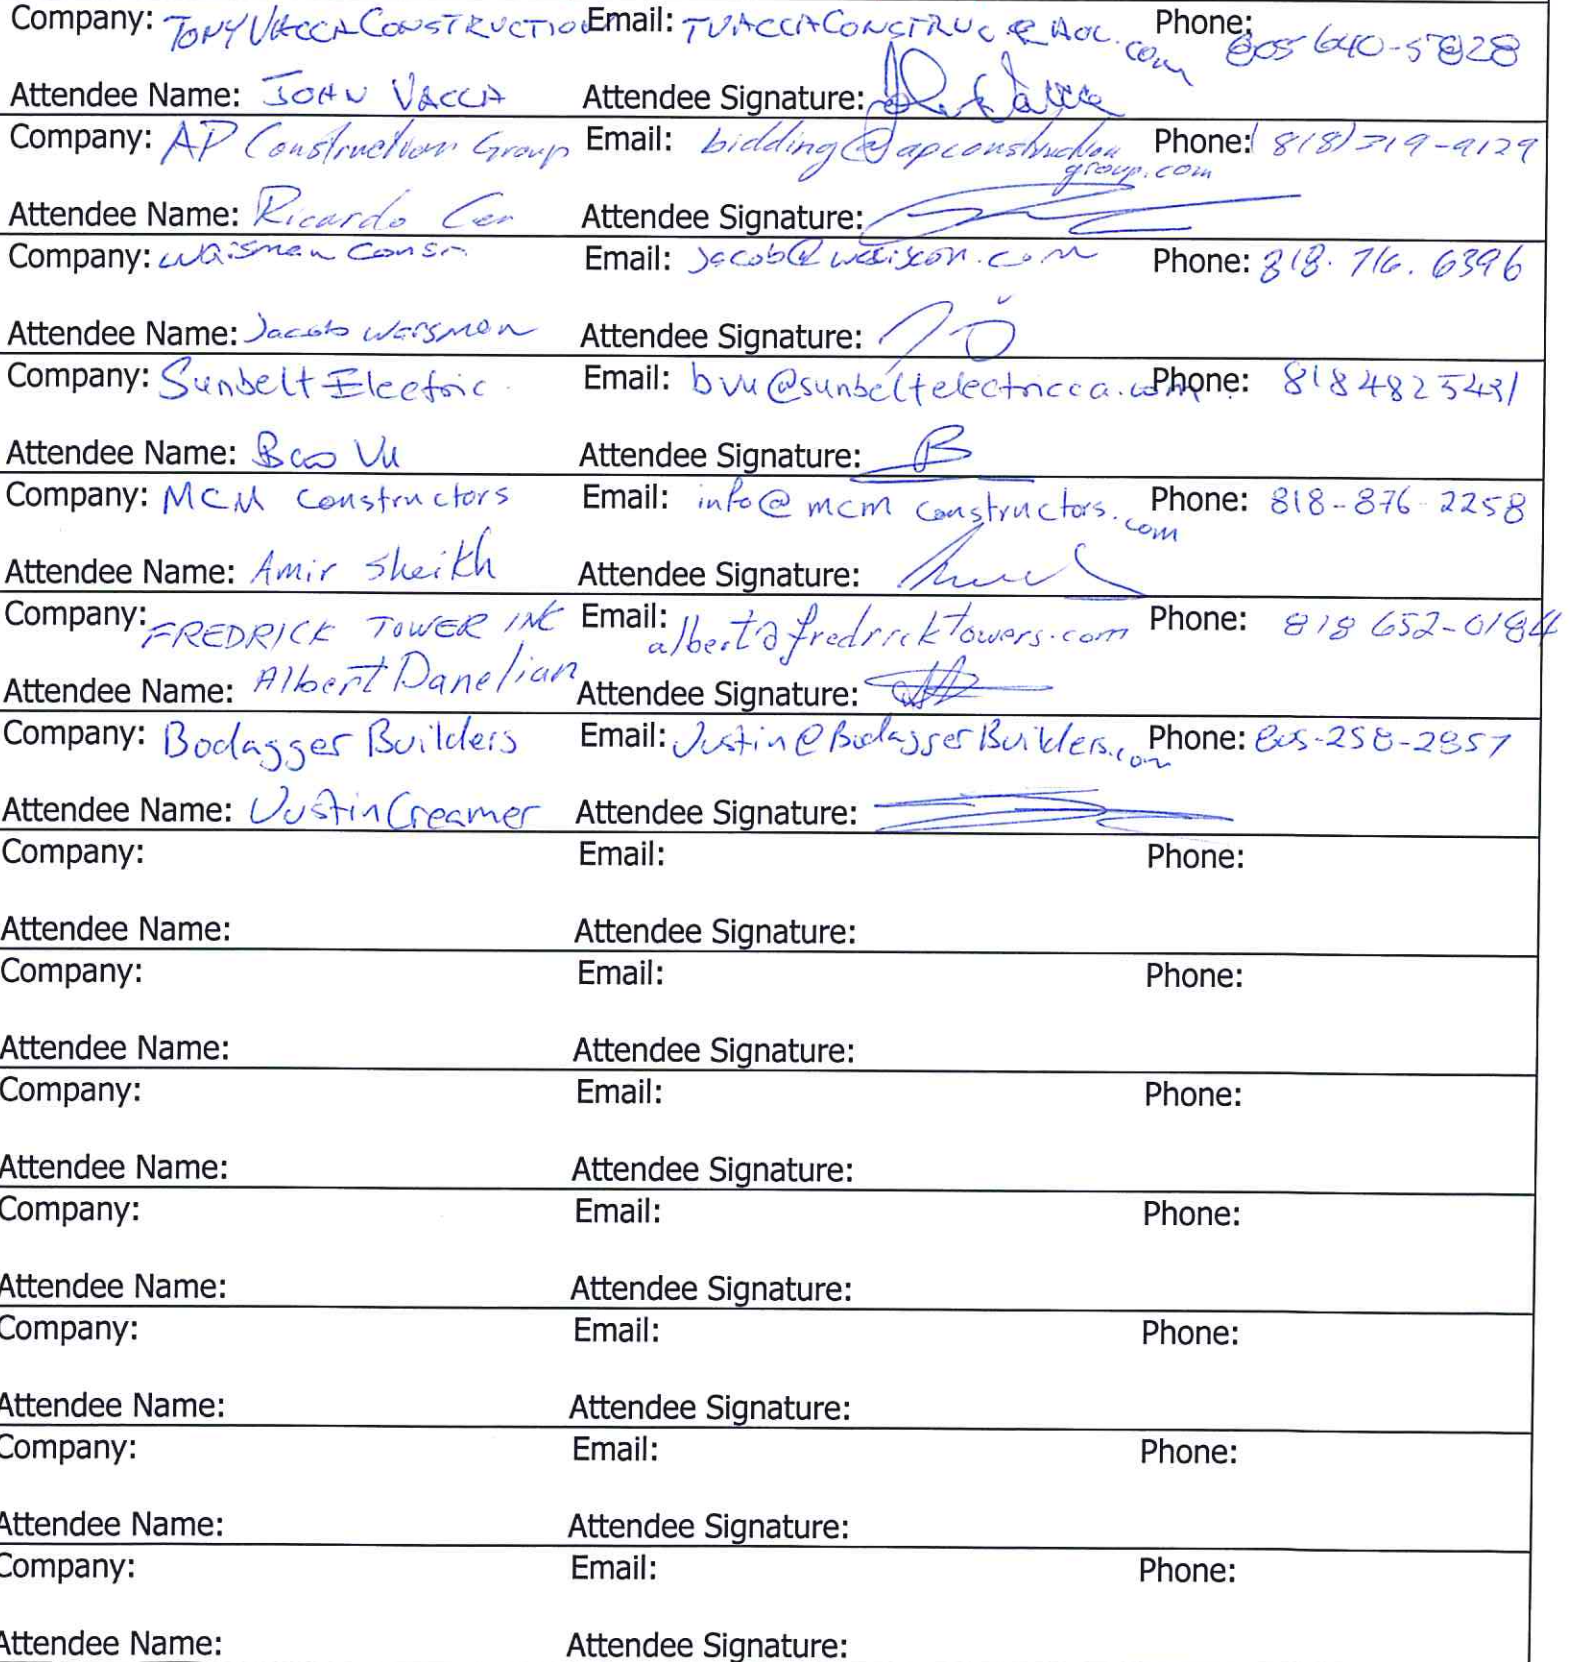 Company: TONY VACCA CONSTRUCTION Email: TVACCACONSTRUC@AOL.com Phone: 805 640-5828
Attendee Name: JOHN VACCA Attendee Signature:
Company: AP Construction Group Email: bidding@apconstructiongroup.com Phone: (818) 719-9129
Attendee Name: Ricardo Cer Attendee Signature:
Company: Waisman Const Email: Jacob@waiscon.com Phone: 818.716.6396
Attendee Name: Jacob Waisman Attendee Signature:
Company: Sunbelt Electric Email: bvu@sunbeltelectricca.com Phone: 818 482 5431
Attendee Name: Bao Vu Attendee Signature: B
Company: MCM Constructors Email: info@mcmconstructors.com Phone: 818-876-2258
Attendee Name: Amir Sheikh Attendee Signature:
Company: FREDRICK TOWER INC Email: albert@fredricktowers.com Phone: 818 652-0184
Attendee Name: Albert Danelian Attendee Signature:
Company: Bodagger Builders Email: Justin@BodaggerBuilders.com Phone: 805-258-2857
Attendee Name: Justin Creamer Attendee Signature:
Company: Email: Phone:
Attendee Name: Attendee Signature:
Company: Email: Phone:
Attendee Name: Attendee Signature:
Company: Email: Phone:
Attendee Name: Attendee Signature:
Company: Email: Phone:
Attendee Name: Attendee Signature:
Company: Email: Phone:
Attendee Name: Attendee Signature:
Company: Email: Phone:
Attendee Name: Attendee Signature:
Company: Email: Phone:
Attendee Name: Attendee Signature: